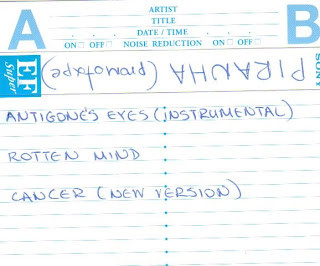 A
ARTIST
TITLE
DATE / TIME
ON □ OFF □ NOISE REDUCTION ON □ OFF □
B
EF
Super
PIRANHA (promotape)
SONY
ANTIGONE'S EYES (iNSTRUMENTAL)
ROTTEN MIND
CANCER (NEW VERSION)